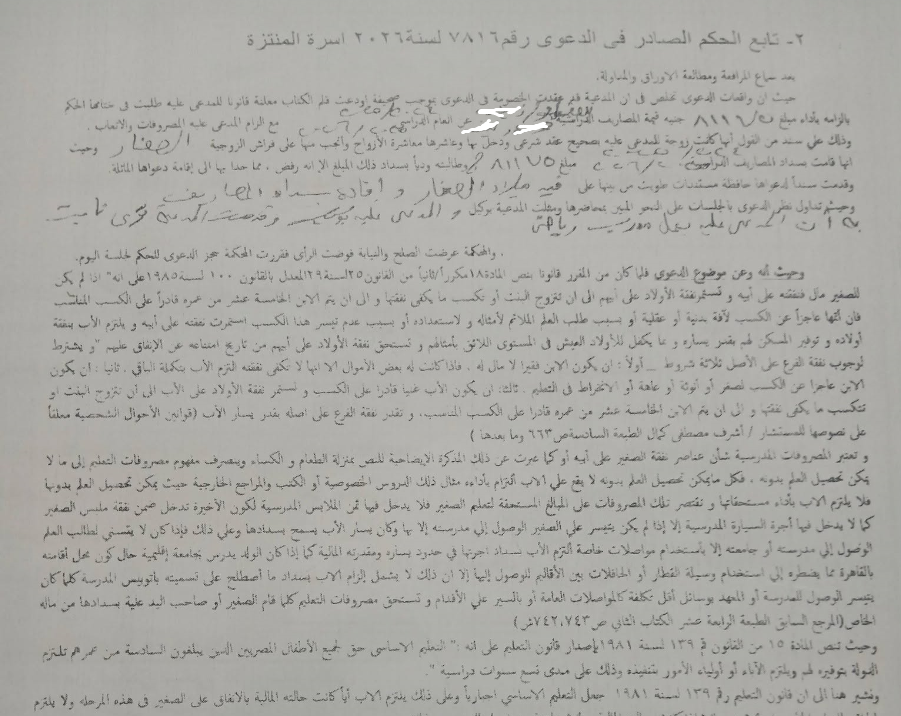 ٢- تابع الحكم الصادر فى الدعوى رقم ٧٨١٦ لسنة ٢٠٢٦ اسرة المنتزة
بعد سماع المرافعة ومطالعة الاوراق والمداولة.
حيث ان واقعات الدعوى تخلص فى ان المدعية قد عقدت الخصومة فى الدعوى بموجب صحيفة اودعت قلم الكتاب معلنة قانونا للمدعى عليه طلبت فى ختامها الحكم
بالزامه بأداء مبلغ جنيه قيمة المصاريف الدراسية عن العام الدراسى مع الزام المدعى عليه المصروفات والاتعاب .
وذلك علي سند من القول أنها كانت زوجة للمدعى عليه بصحيح عقد شرعى ودخل بها وعاشرها معاشرة الأزواج وأنجب منها على فراش الزوجية الصغار وحيث
انها قامت بسداد المصاريف الدراسية مبلغ وطالبته ودياً بسداد ذلك المبلغ الإ انه رفض ، مما حدا بها الى إقامة دعواها الماثلة.
وقدمت سنداً لدعواها حافظة مستندات طويت من بينها على قيد ميلاد الصغار و افادة بسداد المصاريف
وحيث تداول نظر الدعوى بالجلسات على النحو المبين بمحاضرها ومثلت المدعية بوكيل و المدعى عليه بوكيل وقدمت المدعية تحرى ثابت
به ان المدعى عليه يعمل مدرب رياضى
. والمحكمة عرضت الصلح والنيابة فوضت الرأى فقررت المحكمة حجز الدعوى للحكم لجلسة اليوم.
وحيث أنه وعن موضوع الدعوي فلما كان من المقرر قانونا بنص المادة ١٨ مكرراً/ثانياً من القانون ٢٥ لسنة ٢٩ المعدل بالقانون ١٠٠ لسنة ١٩٨٥ على انه" اذا لم يكن
للصغير مال فنفقته على أبيه و تستمر نفقة الأولاد على أبيهم الى ان تتزوج البنت أو تكسب ما يكفى نفقتها و الى ان يتم الابن الخامسة عشر من عمره قادراً على الكسب المناسب
فان أتمها عاجزاً عن الكسب لآفة بدنية أو عقلية أو بسبب طلب العلم الملائم لأمثاله و لاستعداده أو بسبب عدم تيسر هذا الكسب استمرت نفقته على أبيه و يلتزم الأب بنفقة
أولاده و توفير المسكن لهم بقدر يساره و بما يكفل للأولاد العيش فى المستوى اللائق بأمثالهم و تستحق نفقة الأولاد على أبيهم من تاريخ امتناعه عن الإنفاق عليهم "و يشترط
لوجوب نفقة الفرع على الأصل ثلاثة شروط _ أولاً : ان يكون الابن فقيرا لا مال له . فاذا كانت له بعض الأموال الا انها لا تكفى نفقته التزم الأب بتكملة الباقي . ثانيا : ان يكون
الابن عاجزا عن الكسب لصغر أو أنوثة أو عاهة أو الانخراط فى التعليم . ثالث: ان يكون الأب غنيا قادرا على الكسب و تستمر نفقة الأولاد على الأب الى ان تتزوج البنت او
تتكسب ما يكفى نفقتها و الى ان يتم الابن الخامسة عشر من عمره قادرا على الكسب المناسب، و تقدر نفقة الفرع على اصله بقدر يسار الأب (قوانين الأحوال الشخصية معلقاً
على نصوصها للمستشار / أشرف مصطفى كمال الطبعة السادسة ص٦٦٣ وما بعدها )
و تعتبر المصروفات المدرسية شأن عناصر نفقة الصغير على أبيه أو كما عبرت عن ذلك المذكرة الإيضاحية للنص بمنزلة الطعام و الكساء وينصرف مفهوم مصروفات التعليم إلى ما لا
يمكن تحصيل العلم بدونه ، فكل ما يمكن تحصيل العلم بدونه لا يقع علي الاب ألتزام بأداءه مثال ذلك الدروس الخصوصية أو الكتب والمراجع الخارجية حيث يمكن تحصيل العلم بدونها
فلا يلتزم الاب بأداء مستحقاتها و تقتصر تلك المصروفات على المبالغ المستحقة لتعليم الصغير فلا يدخل فيها ثمن الملابس المدرسية لكون الأخيرة تدخل ضمن نفقة ملبس الصغير
كما لا يدخل فيها أجرة السيارة المدرسية إلا إذا لم يكن يتيسر علي الصغير الوصول إلي مدرسته إلا بها وكان يسار الأب يسمح بسدادها وعلي ذلك فإذا كان لا يتسني لطالب العلم
الوصول إلي مدرسته أو جامعته إلا باستخدام مواصلات خاصة ألتزم الأب بسداد اجرتها في حدود يساره ومقدرته المالية كما إذا كان الولد يدرس بجامعة إقليمية حال كون محل أقامته
بالقاهرة مما يضطره إلي استخدام وسيلة القطار أو الحافلات بين الأقاليم للوصول إليها إلا ان ذلك لا يشمل إلزام الاب بسداد ما أصطلح علي تسميته باتوبيس المدرسة كلما كان
يتيسر الوصول للمدرسة أو المعهد بوسائل أقل تكلفة كالمواصلات العامة أو بالسير علي الأقدام و تستحق مصروفات التعليم كلما قام الصغير أو صاحب اليد علية بسدادها من ماله
الخاص(المرجع السابق الطبعة الرابعة عشر الكتاب الثاني ص ٧٤٢،٧٤٣)
وحيث تنص المادة ١٥ من القانون رقم ١٣٩ لسنة ١٩٨١ بإصدار قانون التعليم على انه :" التعليم الاساسي حق لجميع الأطفال المصريين الذين يبلغون السادسة من عمرهم تلتزم
الدولة بتوفيره لهم ويلتزم الآباء أو أولياء الأمور بتنفيذه وذلك على مدى تسع سنوات دراسية ".
ونشير هنا الى ان قانون التعليم رقم ١٣٩ لسنة ١٩٨١ جعل التعليم الاساسي اجبارياً وعلى ذلك يلتزم الاب أياً كانت حالته المالية بالانفاق على الصغير فى هذه المرحلة ولا يلتزم